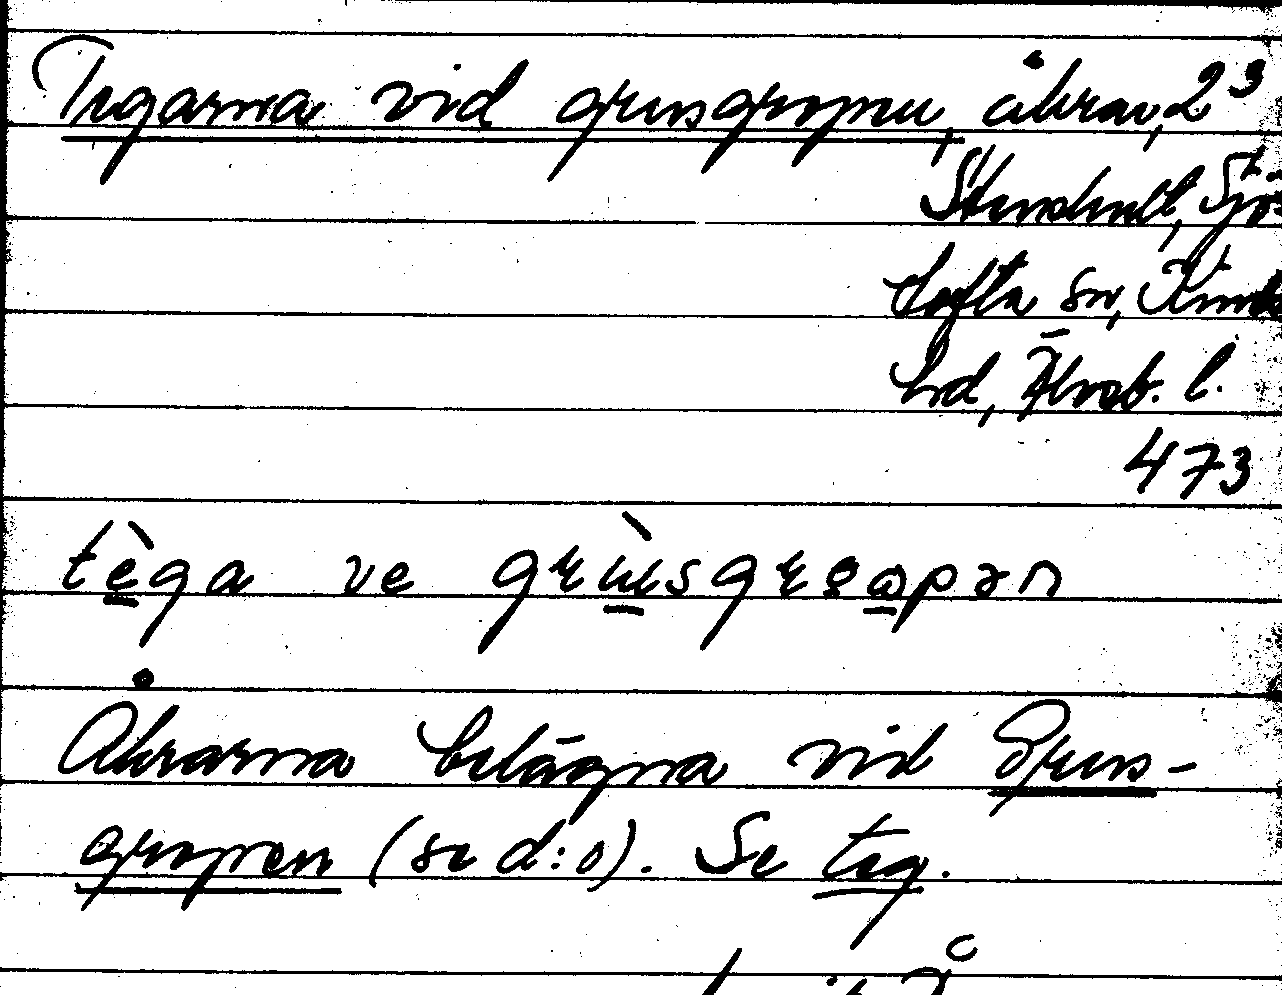 Tegarna vid grusgropen, åkrar, 23
Stenshult, Sjö-
tofta sn, Kinds
hd, Älvsb. l.
473
tèga ve grùsgrǫpən
Åkrarna belägna vid Grus-
gropen (se d:o). Se teg.